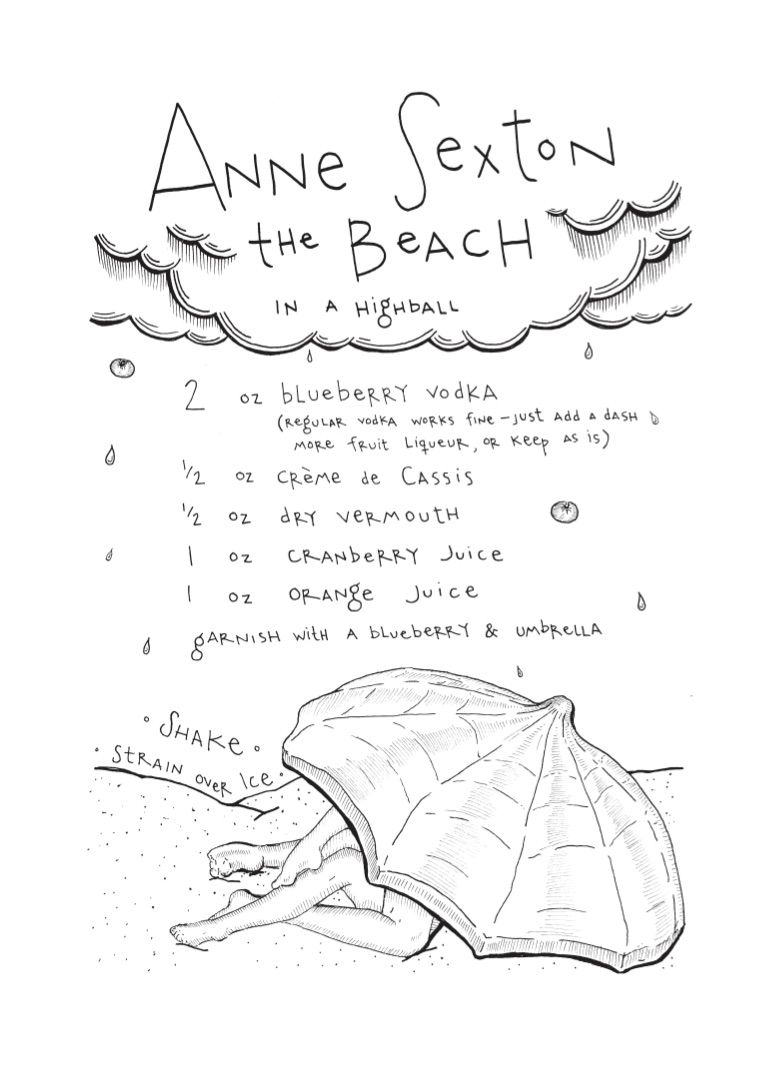 Anne Sexton
the Beach
in a Highball
2 oz blueberry vodka
(regular vodka works fine – just add a dash
more fruit liqueur, or keep as is)
1/2 oz crème de Cassis
1/2 oz dry vermouth
1 oz cranberry juice
1 oz orange juice
garnish with a blueberry & umbrella
• Shake •
• Strain over Ice •